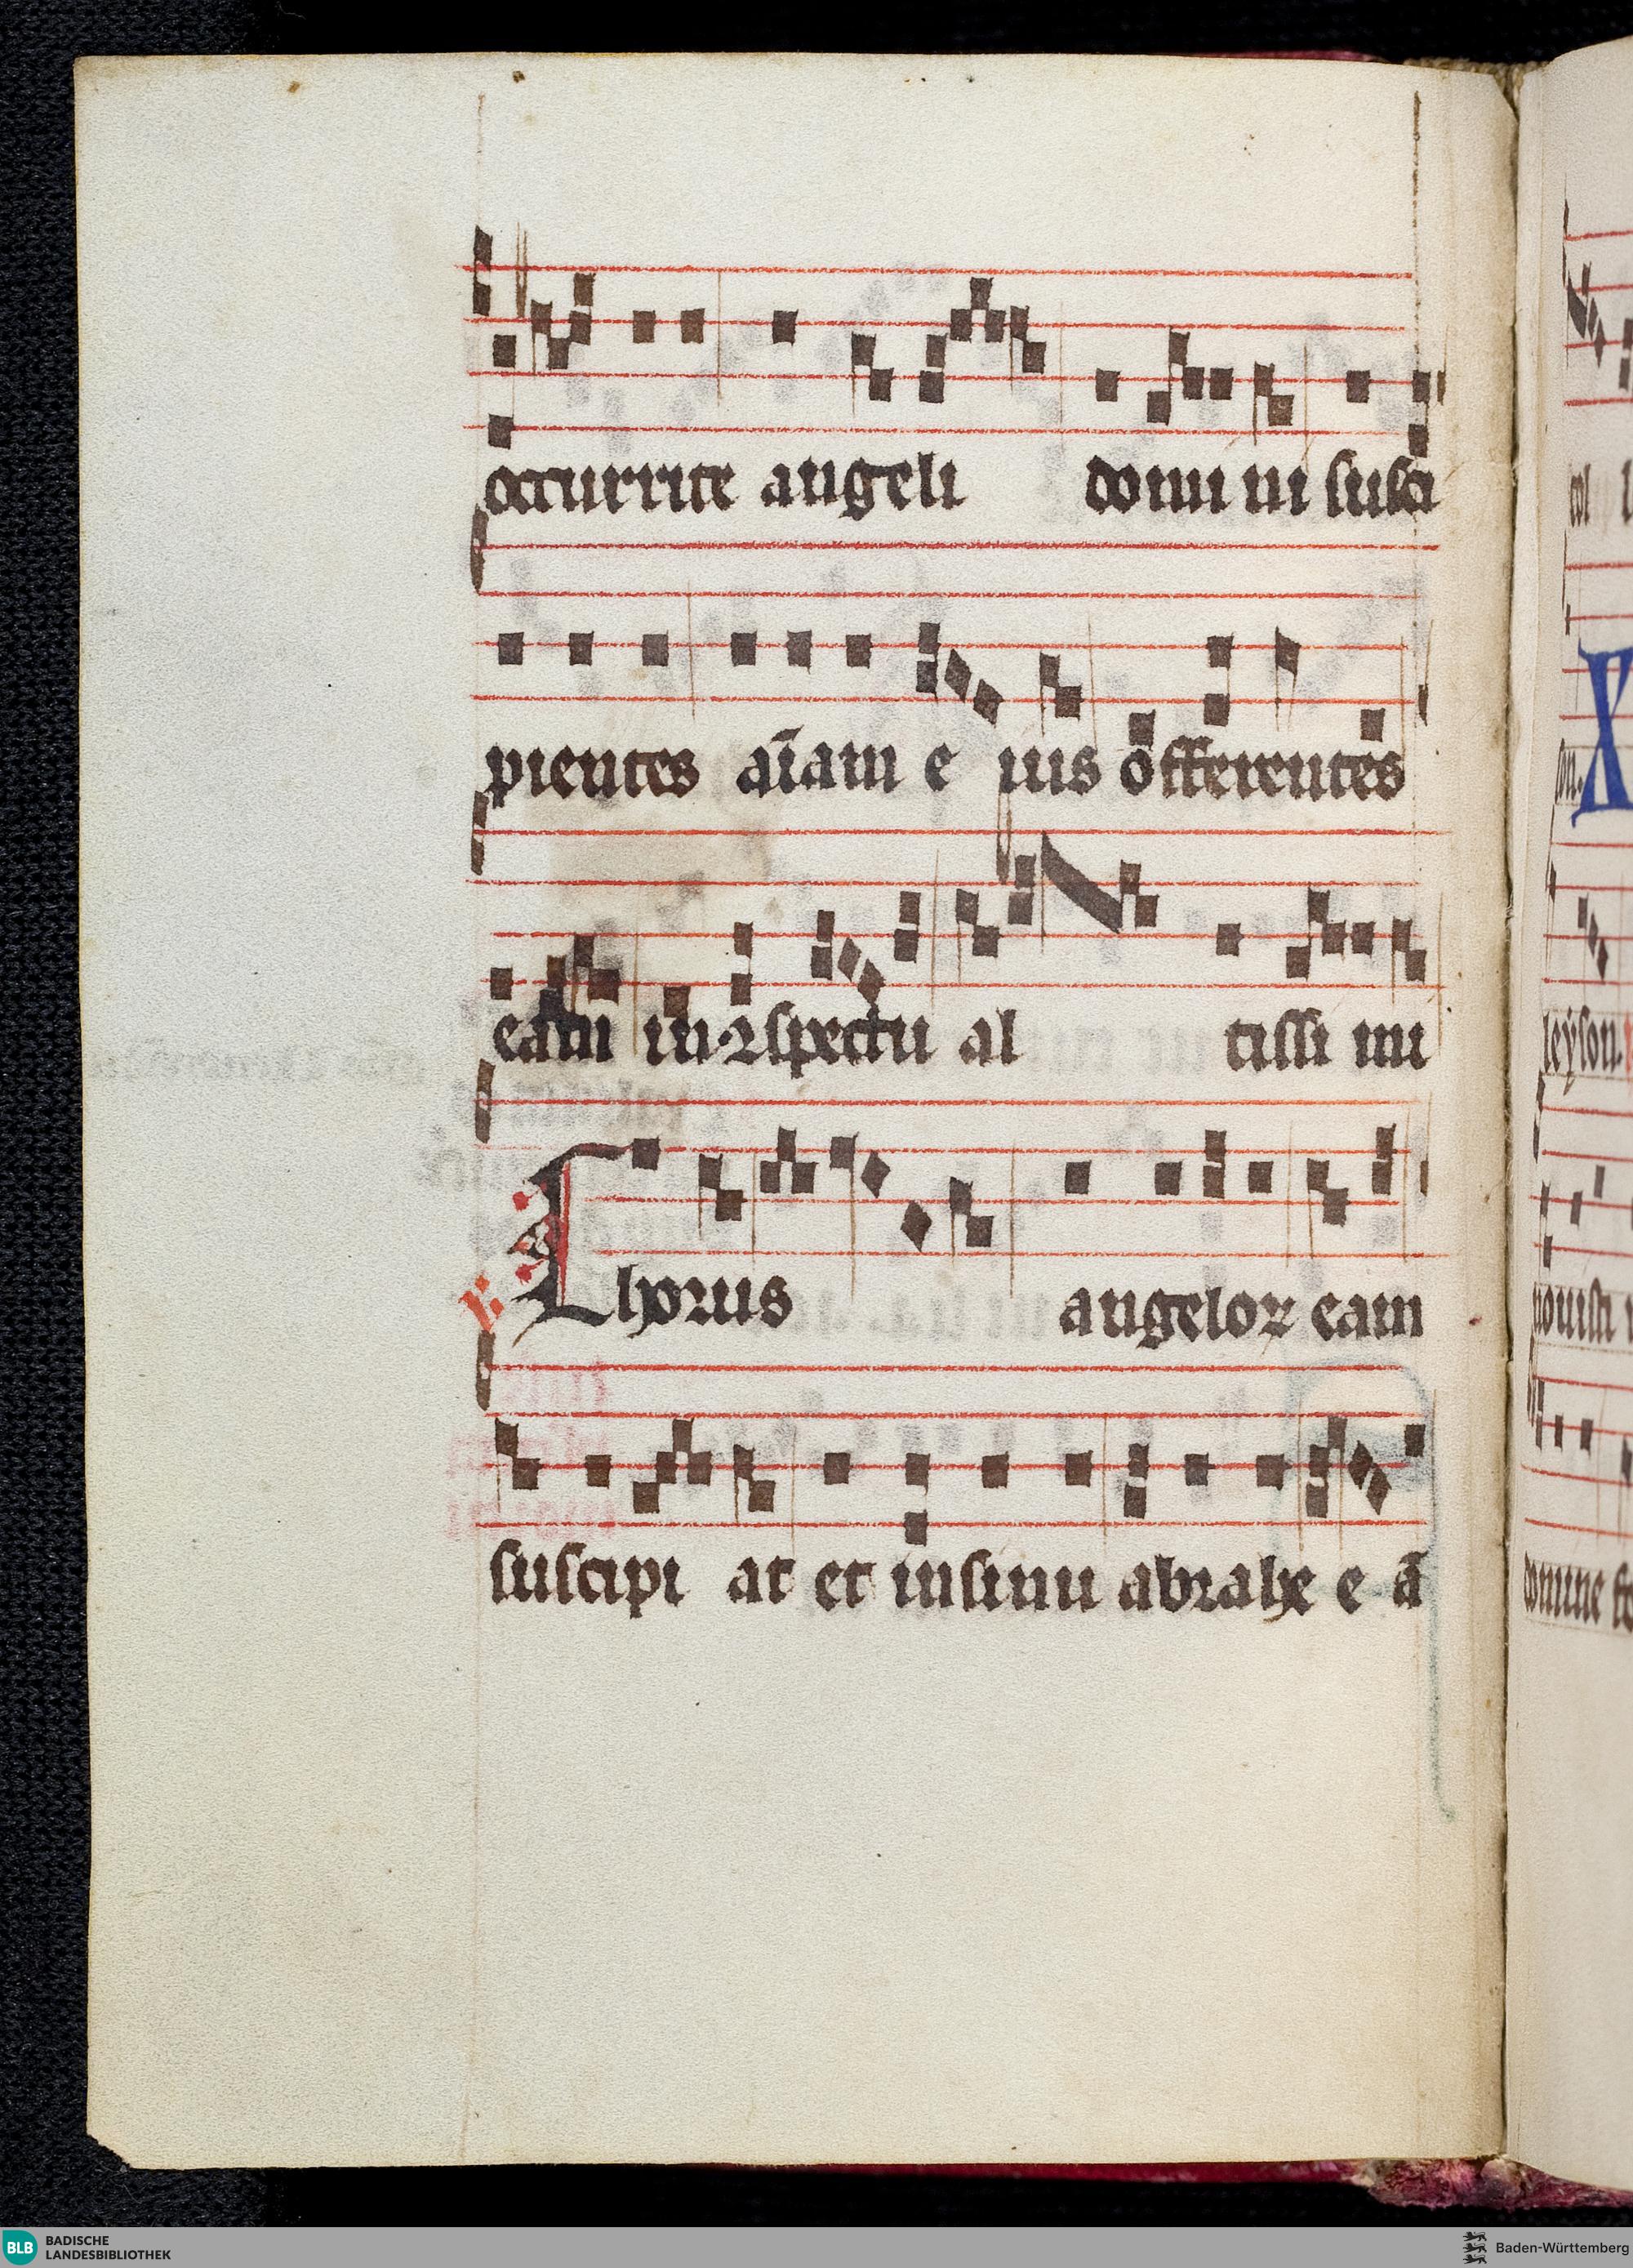 occurrite angeli domini susci
pientes aīam eius offerentes
eam in ꝯspectu altissimi
℟. Chorus angeloꝝ eam
suscipiat et in sinu abrahe eā
col
son. X
leyson.
nouisti
domine
BLB BADISCHE LANDESBIBLIOTHEK
Baden-Württemberg